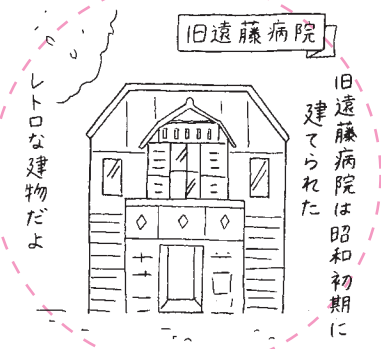 旧遠藤病院
旧遠藤病院は昭和初期に
建てられた
レトロな建物だよ